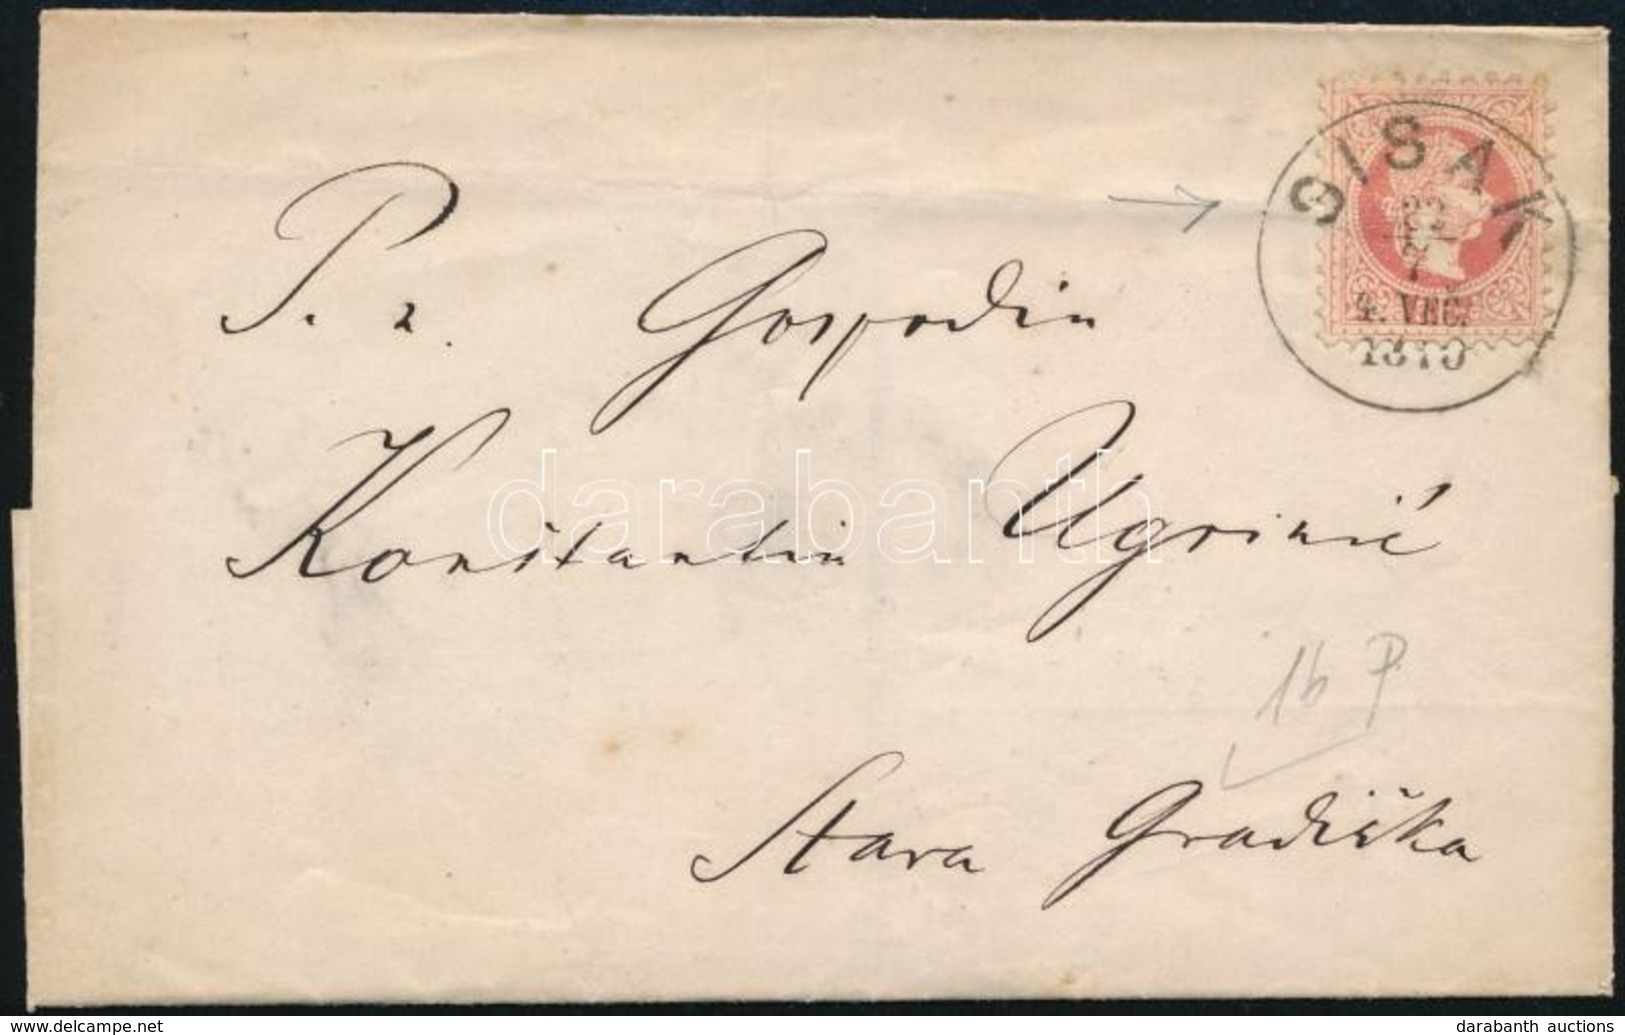 SISAK
22
7
4. VEČ.
1870
P. z. Gospodin
Konštantin Ugrinić
1b P
Stara Gradiška
darabanth
www.delcampe.net
darabanth auctions